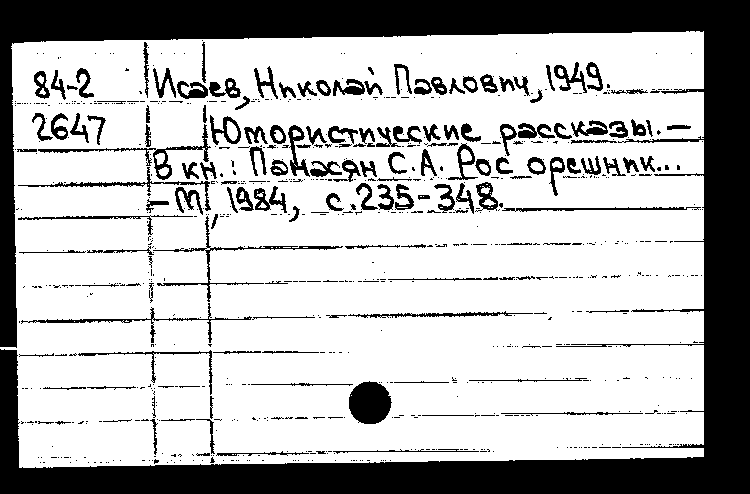 84-2 Исаев, Николай Павлович, 1949.
2647 Юмористические рассказы. —
В кн.: Панасян С.А. Рос орешник...
— М, 1984, с.235-348.